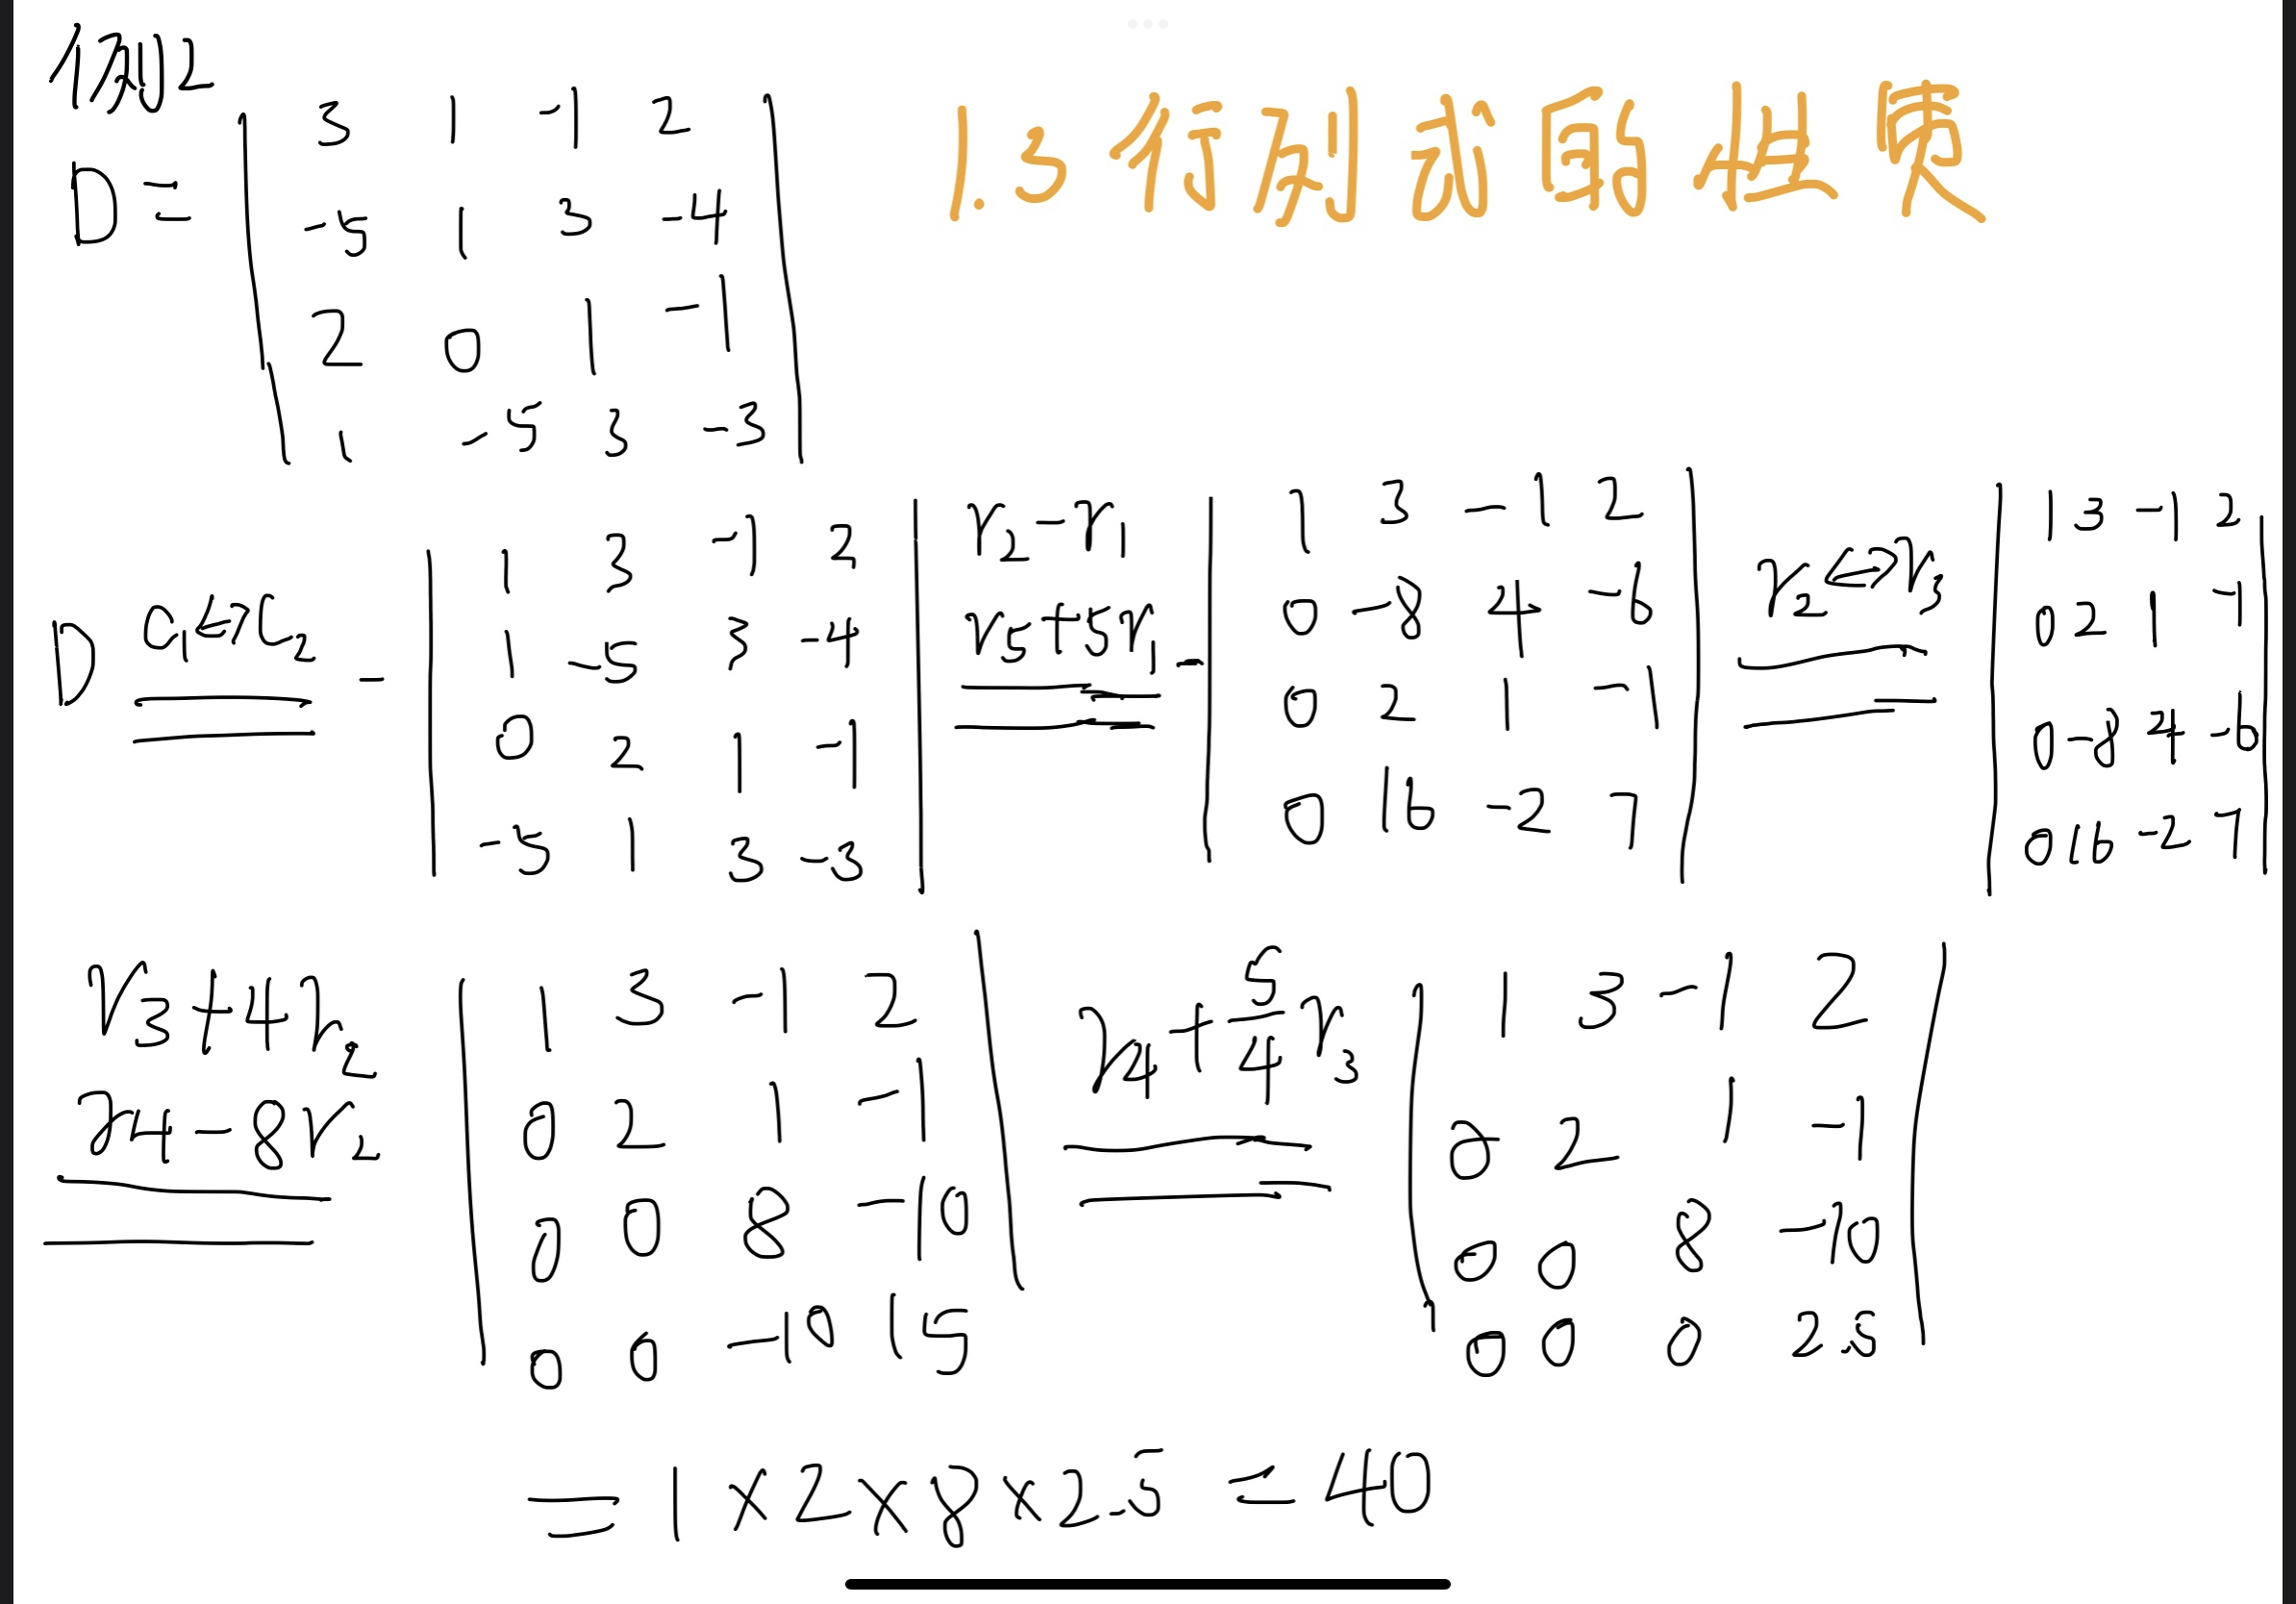 例2
1.3 行列式的性质
D =
3 1 -1 2
-5 1 3 -4
2 0 1 -1
1 -5 3 -3
D c₁↔c₂ -
1 3 -1 2
1 -5 3 -4
0 2 1 -1
-5 1 3 -3
r₂-r₁
r₄+5r₁
-
1 3 -1 2
0 -8 4 -6
0 2 1 -1
0 16 -2 7
r₂↔r₃
1 3 -1 2
0 2 1 -1
0 -8 4 -6
0 16 -2 7
r₃+4r₂
r₄-8r₂
1 3 -1 2
0 2 1 -1
0 0 8 -10
0 0 -10 15
r₄+5/4r₃
1 3 -1 2
0 2 1 -1
0 0 8 -10
0 0 0 2.5
=1×2×8×2.5=40